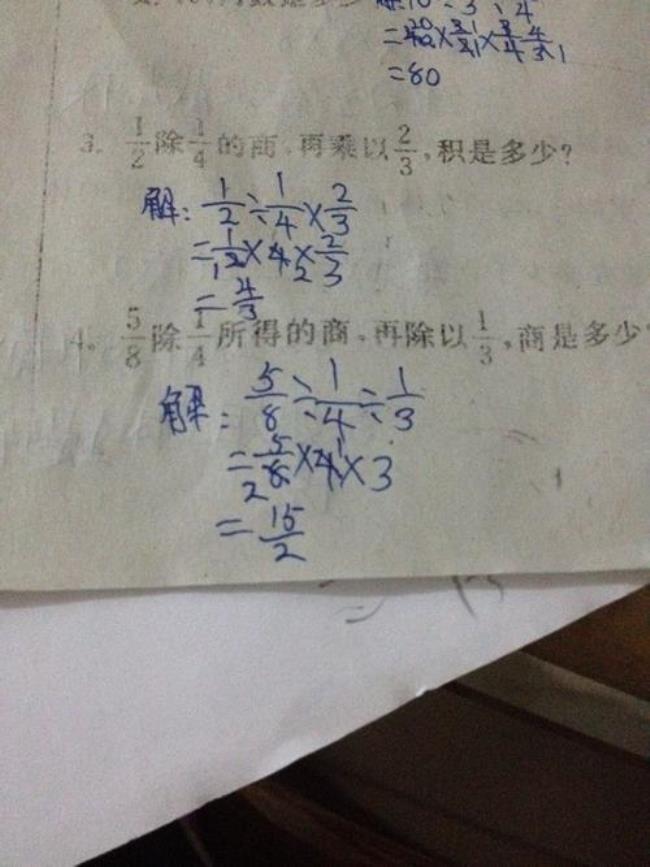 =80
3. 1/2除1/4的商,再乘以2/3,积是多少?
解: 1/2÷1/4×2/3
=1/2×4×2/3
=4/3
4. 5/8除1/4所得的商,再除以1/3,商是多少
解: 5/8÷1/4÷1/3
=5/8×4×3
=15/2